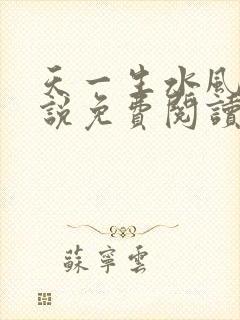 天一生水風
說免費閱讀
蘇寧雲